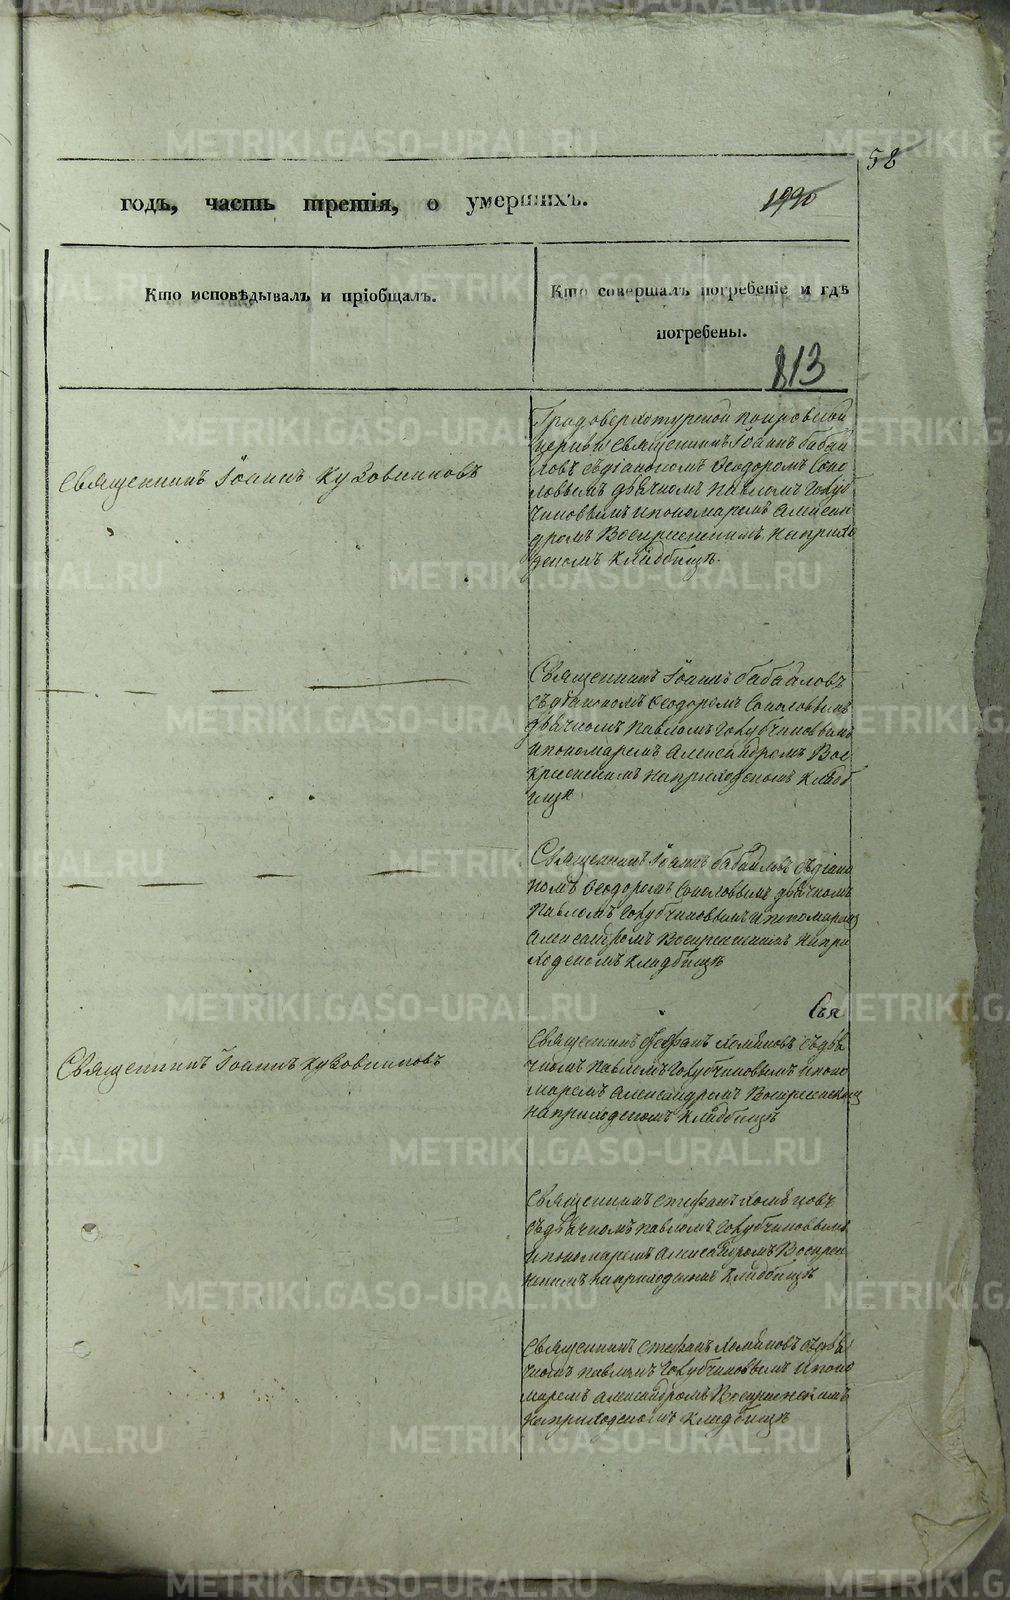 58
годъ, часть третія, о умершихъ.
Кто исповѣдывалъ и пріобщалъ.
Кто совершалъ погребеніе и гдѣ
погребены.
813
Градоверхотурской Покровской
церкви Священникъ Іоаннъ Бабай
ловъ съ діакономъ Ѳеодоромъ Соко
ловымъ дьячкомъ Павломъ Голуб
чиковымъ и пономаремъ Алексан
дромъ Воскресенскимъ на прихо
дскомъ кладбищѣ.
Священникъ Іоаннъ Кузовниковъ
Священникъ Іоаннъ Бабайловъ
съ діакономъ Ѳеодоромъ Соколовымъ
дьячкомъ Павломъ Голубчиковымъ
и пономаремъ Александромъ Вос
кресенскимъ на приходскомъ кладб
ищѣ
Священникъ Іоаннъ Бабайловъ съ діако
номъ Ѳеодоромъ Соколовымъ дьячкомъ
Павломъ Голубчиковымъ и пономаремъ
Александромъ Воскресенскимъ на при
ходскомъ кладбищѣ
Священникъ Стефанъ Хомяковъ съ дья
чкомъ Павломъ Голубчиковымъ и поно
маремъ Александромъ Воскресенскимъ
на приходскомъ кладбищѣ
Священникъ Іоаннъ Кузовниковъ
Священникъ Стефанъ Хомяковъ
съ дьячкомъ Павломъ Голубчиковымъ
и пономаремъ Александромъ Воскресен
скимъ на приходскомъ кладбищѣ
Священникъ Стефанъ Хомяковъ съ дья
чкомъ Павломъ Голубчиковымъ и поно
маремъ Александромъ Воскресенскимъ
на приходскомъ кладбищѣ
METRIKI.GASO-URAL.RU